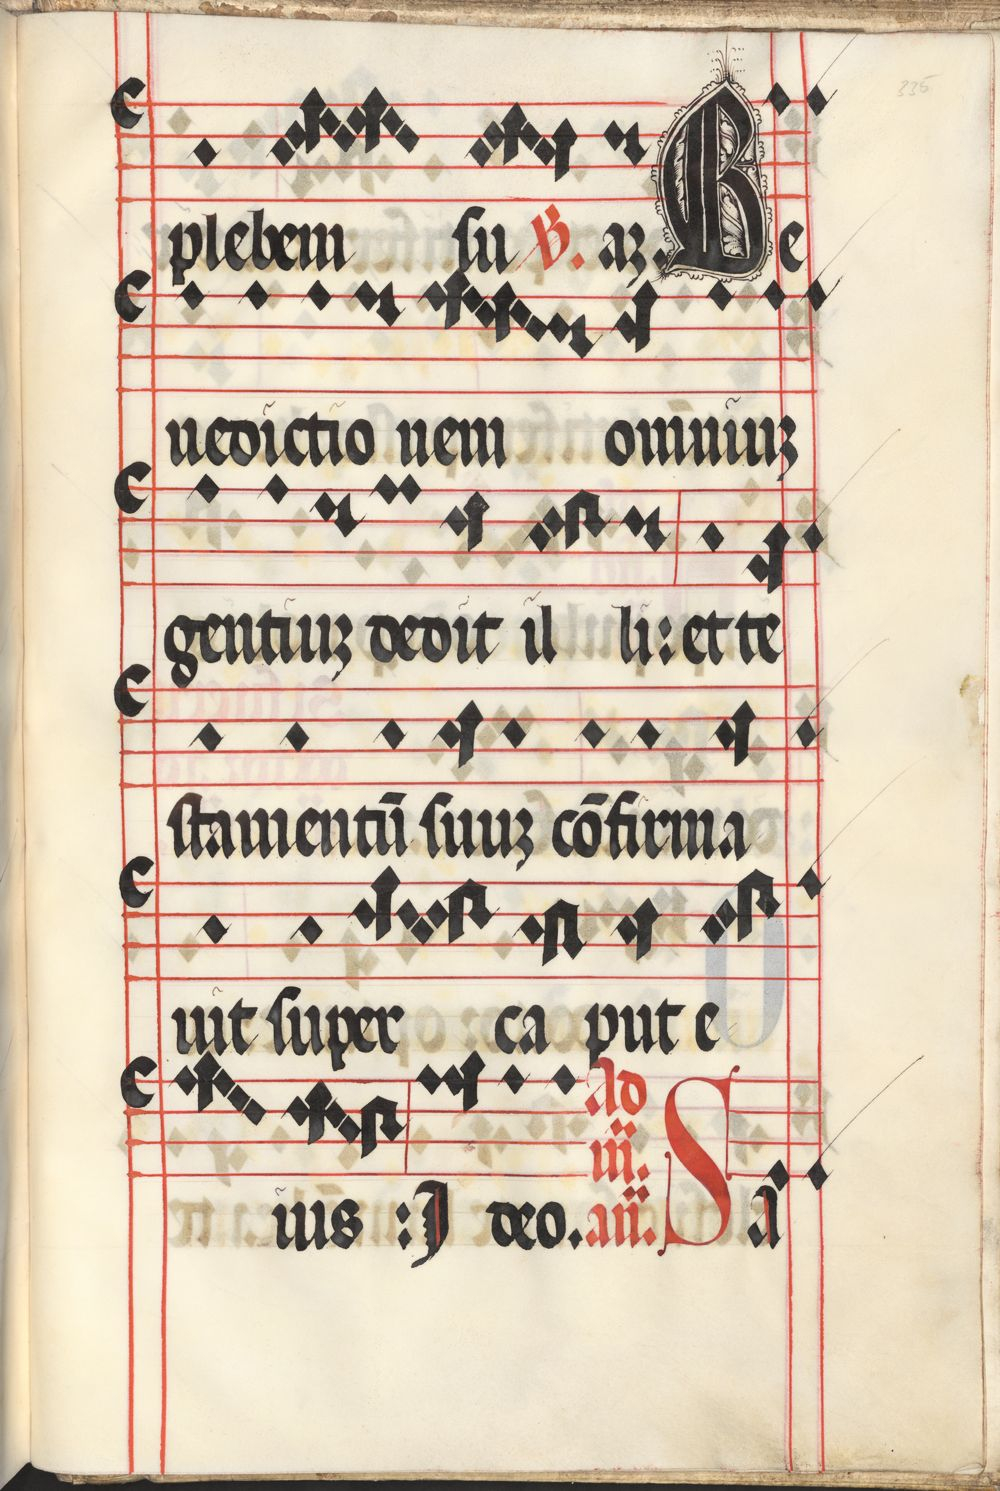 335
plebem su ℣. aʒ. Be
nedictio nem omniũʒ
gentiuʒ dedit il li: et te
stamentũ suuʒ cõfirma
uit super ca put e
Ad
iii.
ius : J deo. añ. Sa